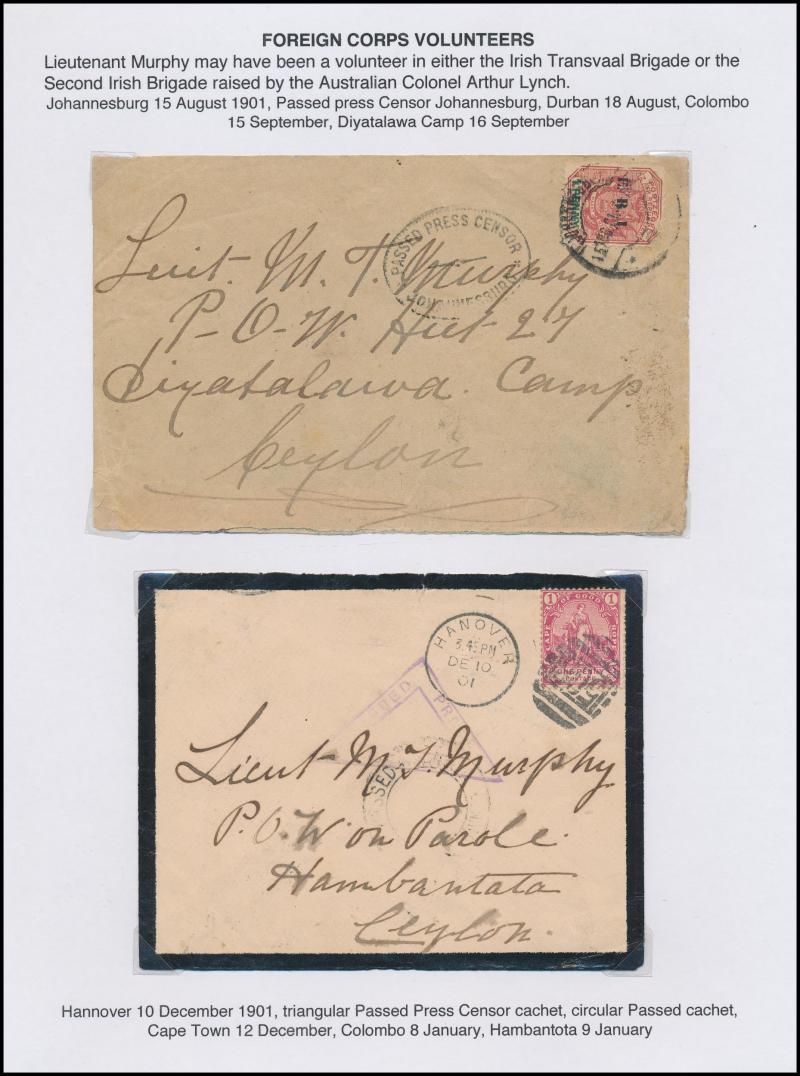 FOREIGN CORPS VOLUNTEERS
Lieutenant Murphy may have been a volunteer in either the Irish Transvaal Brigade or the
Second Irish Brigade raised by the Australian Colonel Arthur Lynch.
Johannesburg 15 August 1901, Passed press Censor Johannesburg, Durban 18 August, Colombo
15 September, Diyatalawa Camp 16 September
E.R.I.
PASSED PRESS CENSOR
JOHANNESBURG
Lieut. M. T. Murphy
P-O-W. Hut 27
Diyatalawa. Camp
Ceylon
HANOVER
3.45 PM
DE 10
01
1 1
CAPE OF GOOD HOPE
ONE PENNY
POSTAGE
PASSED
Lieut M. T. Murphy
P.O.W on Parole.
Hambantata
Ceylon.
Hannover 10 December 1901, triangular Passed Press Censor cachet, circular Passed cachet,
Cape Town 12 December, Colombo 8 January, Hambantota 9 January